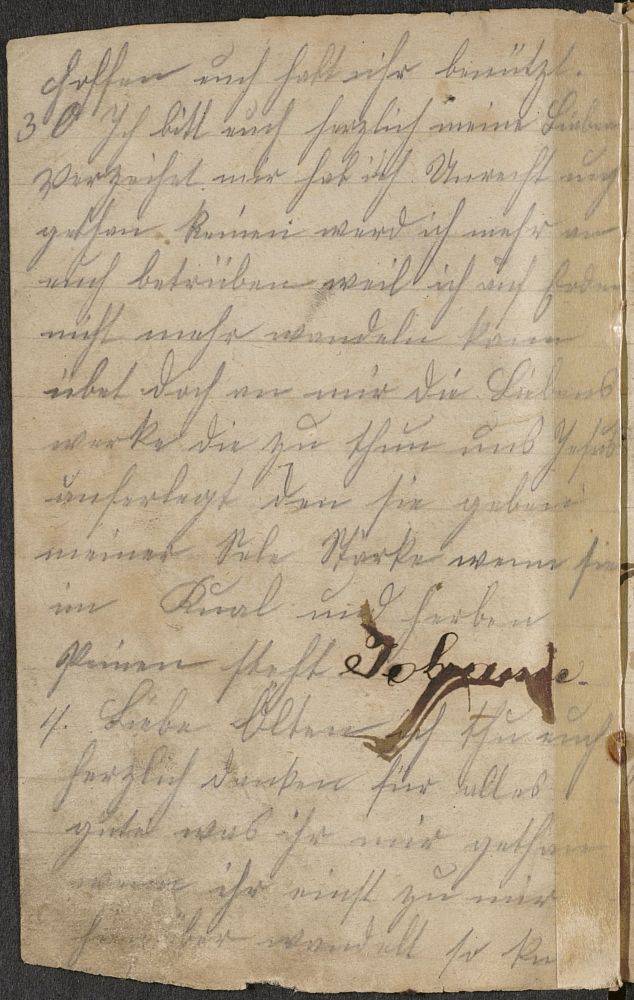 hoffen euch halt ihr benützt.
3 O Ich bitt euch herzlich meine Lieben
Verzeihet mir hab ich Unrecht euch
gethan keinen werd ich mehr an
euch betrüben weil ich auf Erden
nicht mehr wandeln kann
übet doch an mir die Liebens
werke die zu thun uns Jesus
auferlegt den sie geben
meiner Sele Stärke wenn sie
im Qual und herben
Peinen steht
4. Liebe Elten ich thu euch
herzlich danken für alles
gute was ihr mir gethan
wenn ihr einst zu mir
hinüber wandelt so